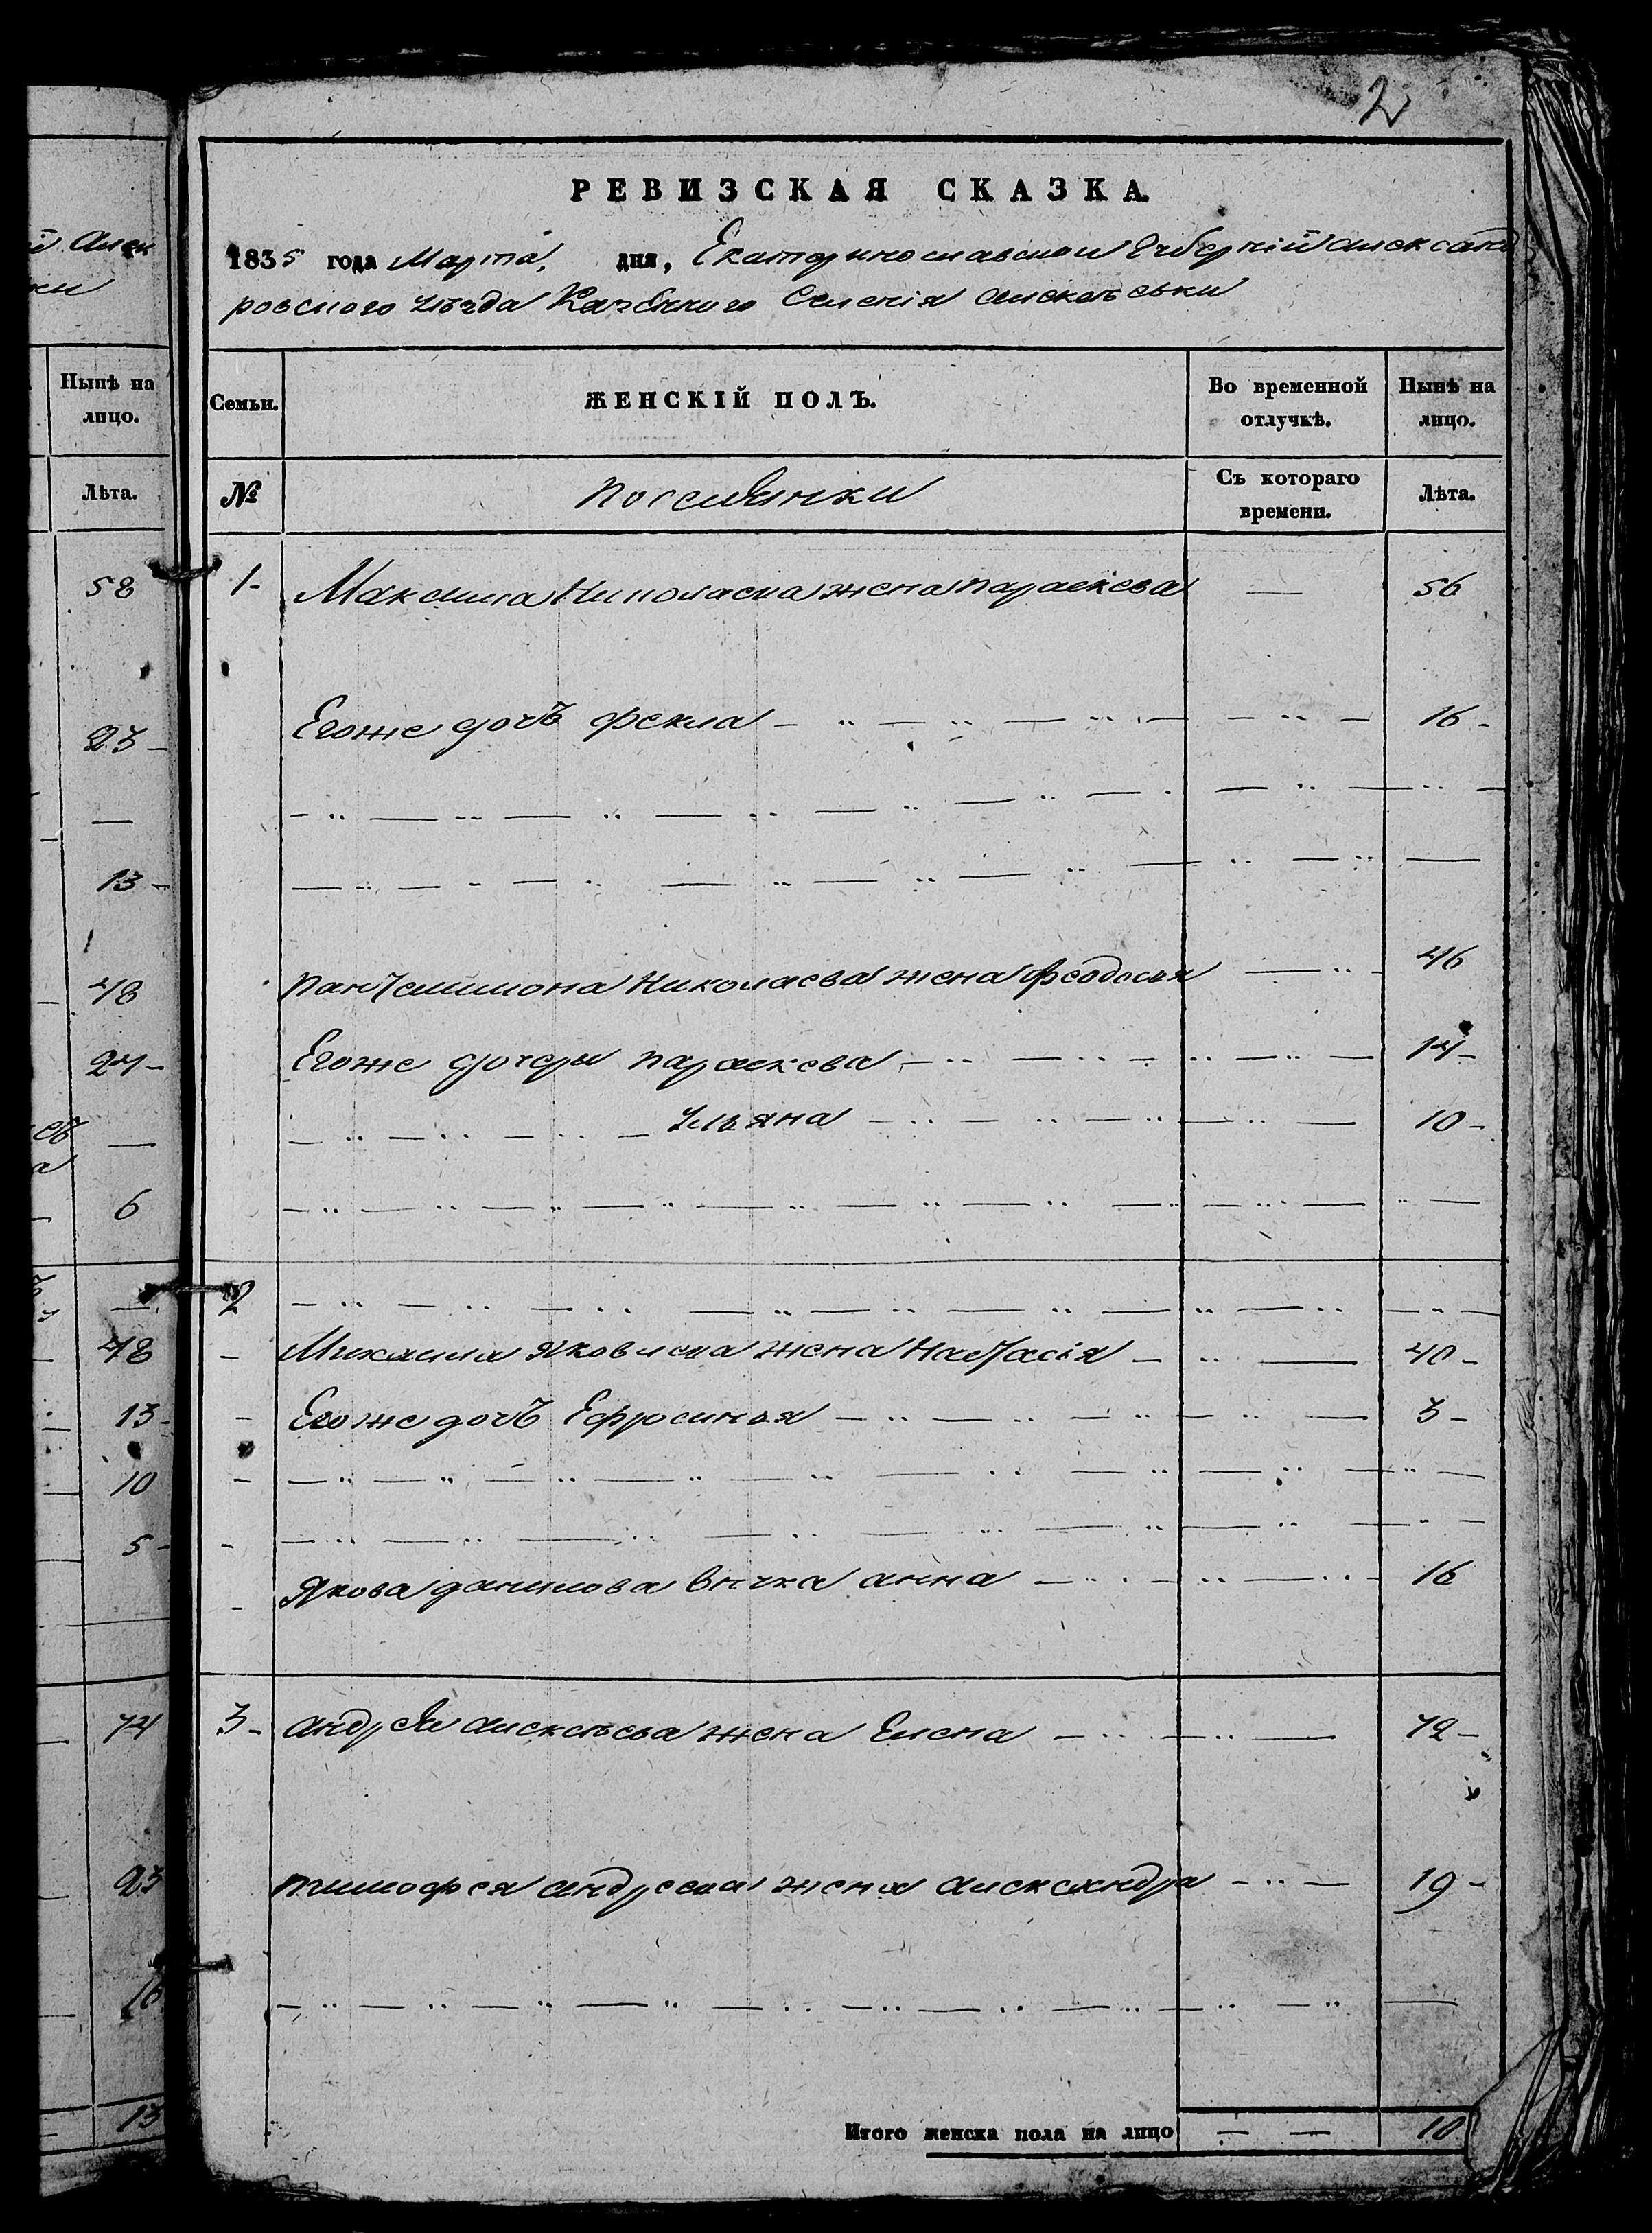 2
РЕВИЗСКАЯ СКАЗКА
1835 года Марта, дня, Екатеринославской Губернïи Александ
ровского уѣзда Казенного Селенïя Алексѣевки
Семьи. ЖЕНСКІЙ ПОЛЪ. Во временной отлучкѣ. Нынѣ на лицо.
№ поселянки Съ котораго времени. Лѣта.
1- Максима Николаева жена параскева — 56
Егоже дочь фекла 16-
пантелимона Николаева жена феодосья 46
Егоже дочери параскева 14-
Ульяна 10-
2
Михаила Яковлева жена Настасiя 40-
Егоже дочь Ефросинья 3-
Якова данилова внучка анна 16
3- андрея алексѣева жена Елена 72-
тимофея андреева жена александра 19-
Итого женска пола на лицо — — 10
Алек
Нынѣ на
лицо.
Лѣта.
58
23-
—
13-
48
24-
—
6
—
48
13-
10
5-
74
23
16
13